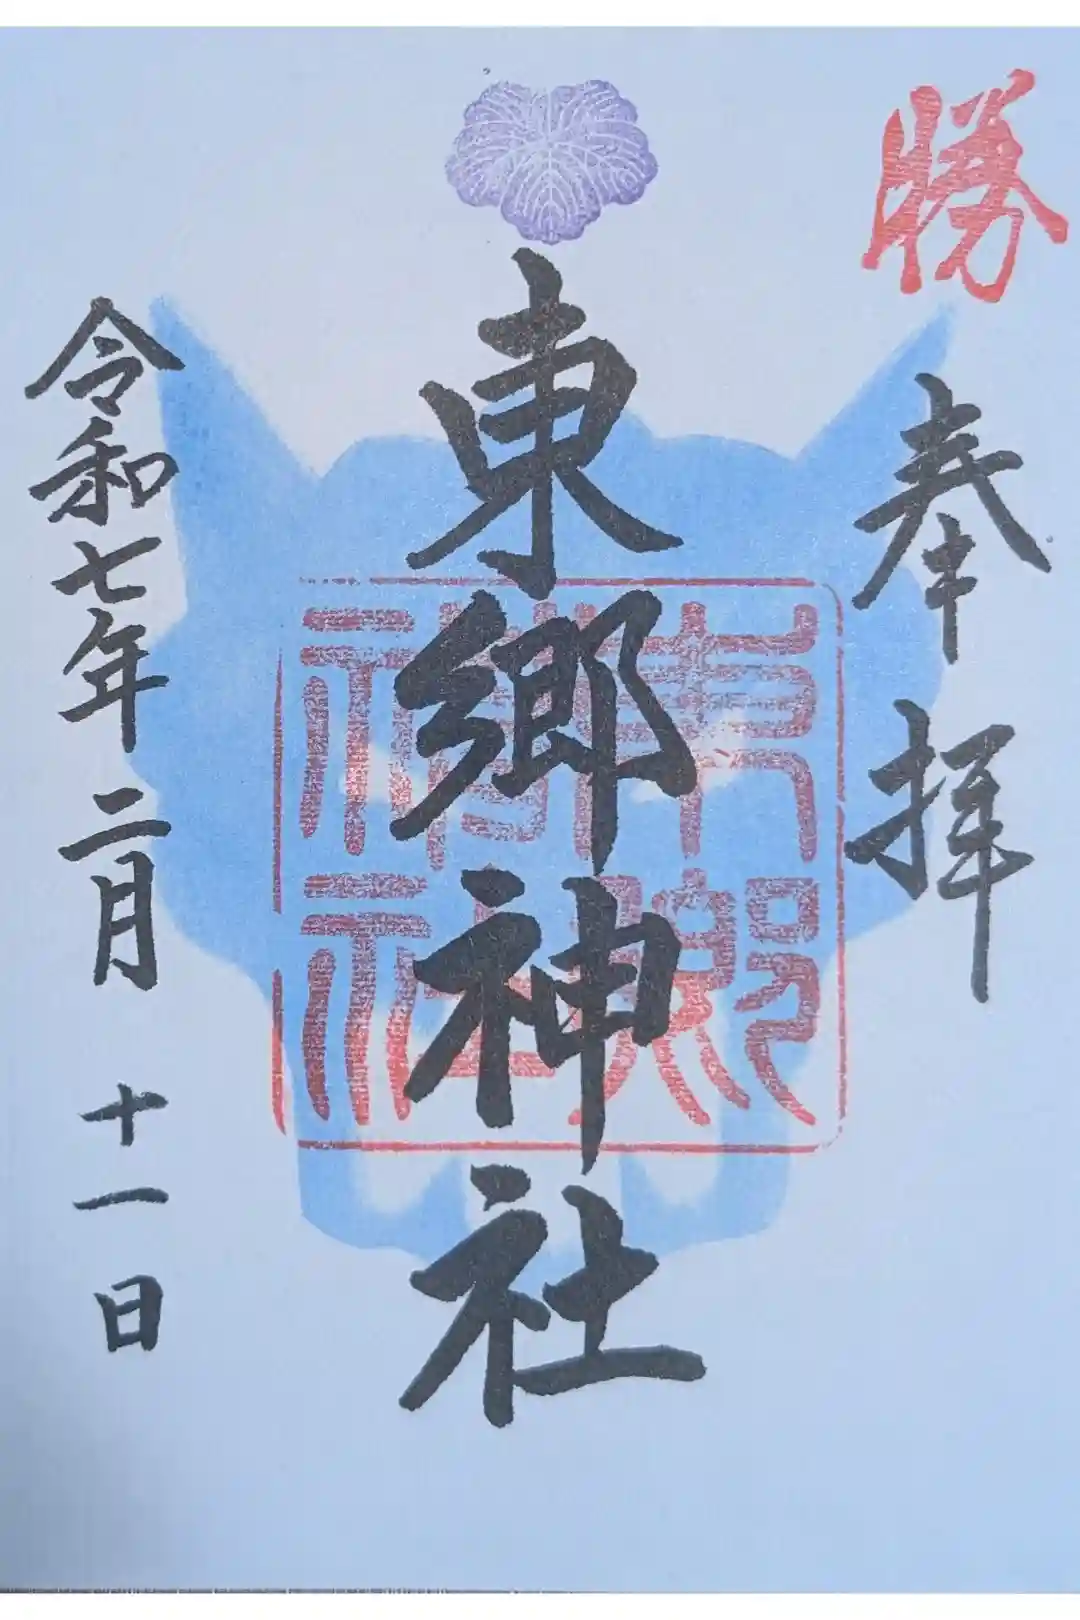 勝
奉拝
東郷神社
東郷神社
令和七年二月十一日